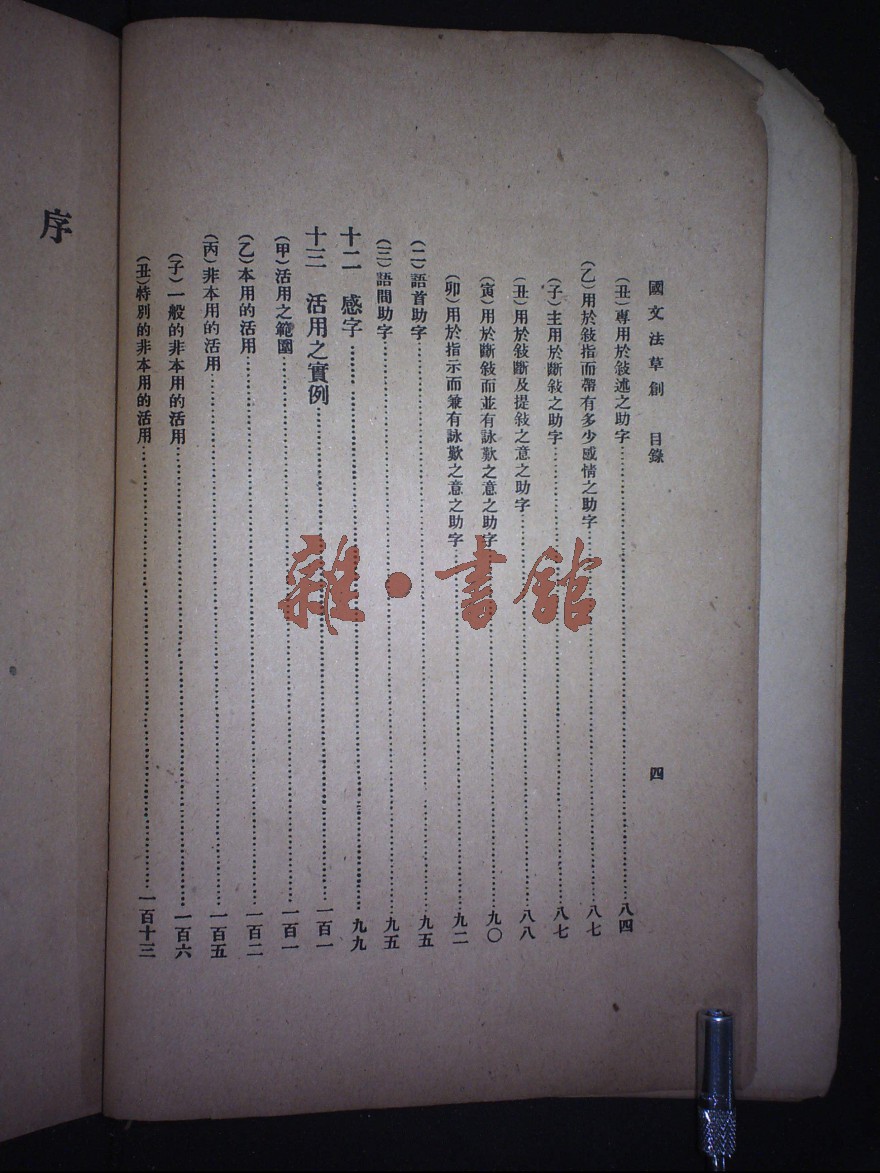 國文法草創 目錄 四
(丑)專用於敍述之助字……八四
(乙)用於敍指而帶有多少感情之助字……八七
(子)主用於斷敍之助字……八七
(丑)用於敍斷及提敍之意之助字……八八
(寅)用於斷敍而並有詠歎之意之助字……九〇
(卯)用於指示而兼有詠歎之意之助字……九二
(二)語首助字……九五
(三)語間助字……九五
十二 感字……九九
十三 活用之實例……一百一
(甲)活用之範圍……一百一
(乙)本用的活用……一百二
(丙)非本用的活用……一百五
(子)一般的非本用的活用……一百六
(丑)特別的非本用的活用……一百十三
序
雜·書館